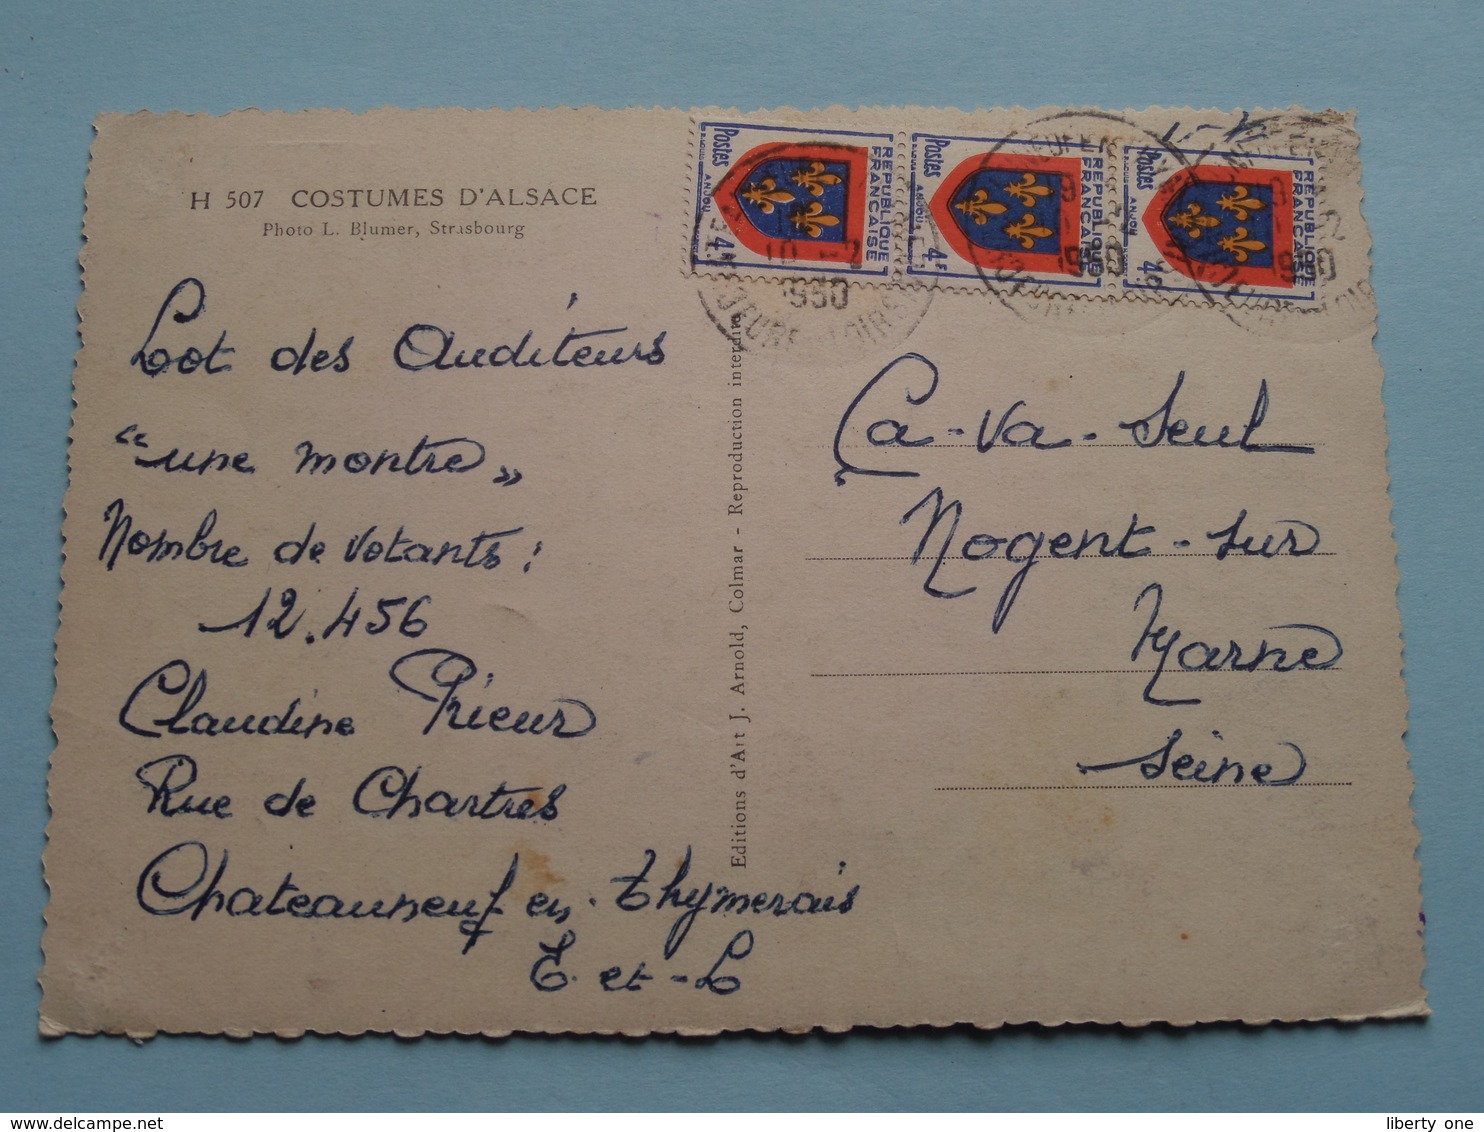 H 507 COSTUMES D'ALSACE
Photo L. Blumer, Strasbourg
Lot des Auditeurs
"une montre"
Nombre de votants :
12.456
Claudine Prieur
Rue de Chartres
Chateauneuf en-Thymerais
E. et-L
Editions d'Art J. Arnold, Colmar - Reproduction interdite
Postes
ANJOU
4F
REPUBLIQUE
FRANCAISE
10 -2
1950
Postes
ANJOU
4F
REPUBLIQUE
FRANCAISE
9
1950
Postes
ANJOU
4F
REPUBLIQUE
FRANCAISE
9 -2
1950
Ca-va-Seul
Nogent-sur
Marne
Seine
liberty one